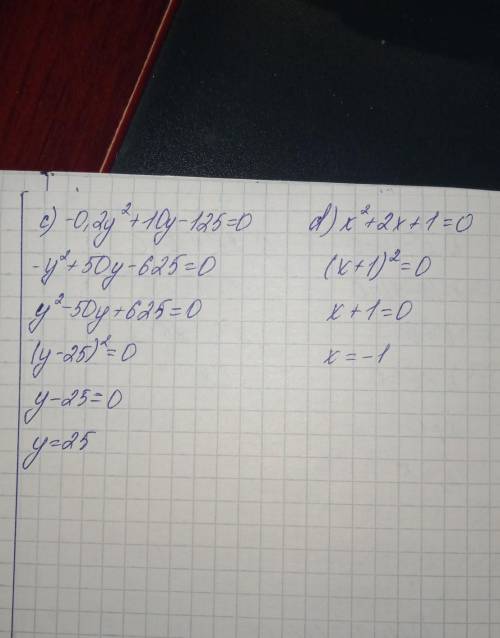 c) -0,2y²+10y-125=0
-y²+50y-625=0
y²-50y+625=0
(y-25)²=0
y-25=0
y=25
d) x²+2x+1=0
(x+1)²=0
x+1=0
x=-1